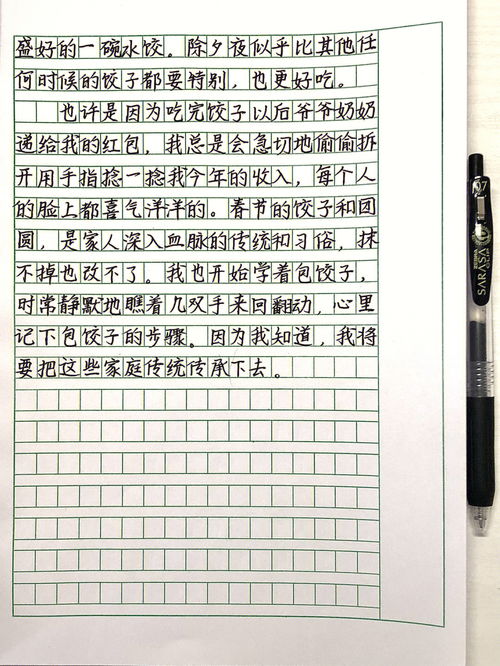 盛好的一碗水饺。除夕夜似乎比其他任
何时候的饺子都要特别，也更好吃。
也许是因为吃完饺子以后爷爷奶奶
递给我的红包，我总是会急切地偷偷拆
开用手指捻一捻我今年的收入，每个人
的脸上都喜气洋洋的。春节的饺子和团
圆，是家人深入血脉的传统和习俗，抹
不掉也改不了。我也开始学着包饺子，
时常静默地瞧着几双手来回翻动，心里
记下包饺子的步骤。因为我知道，我将
要把这些家庭传统传承下去。
0.7
SARASA